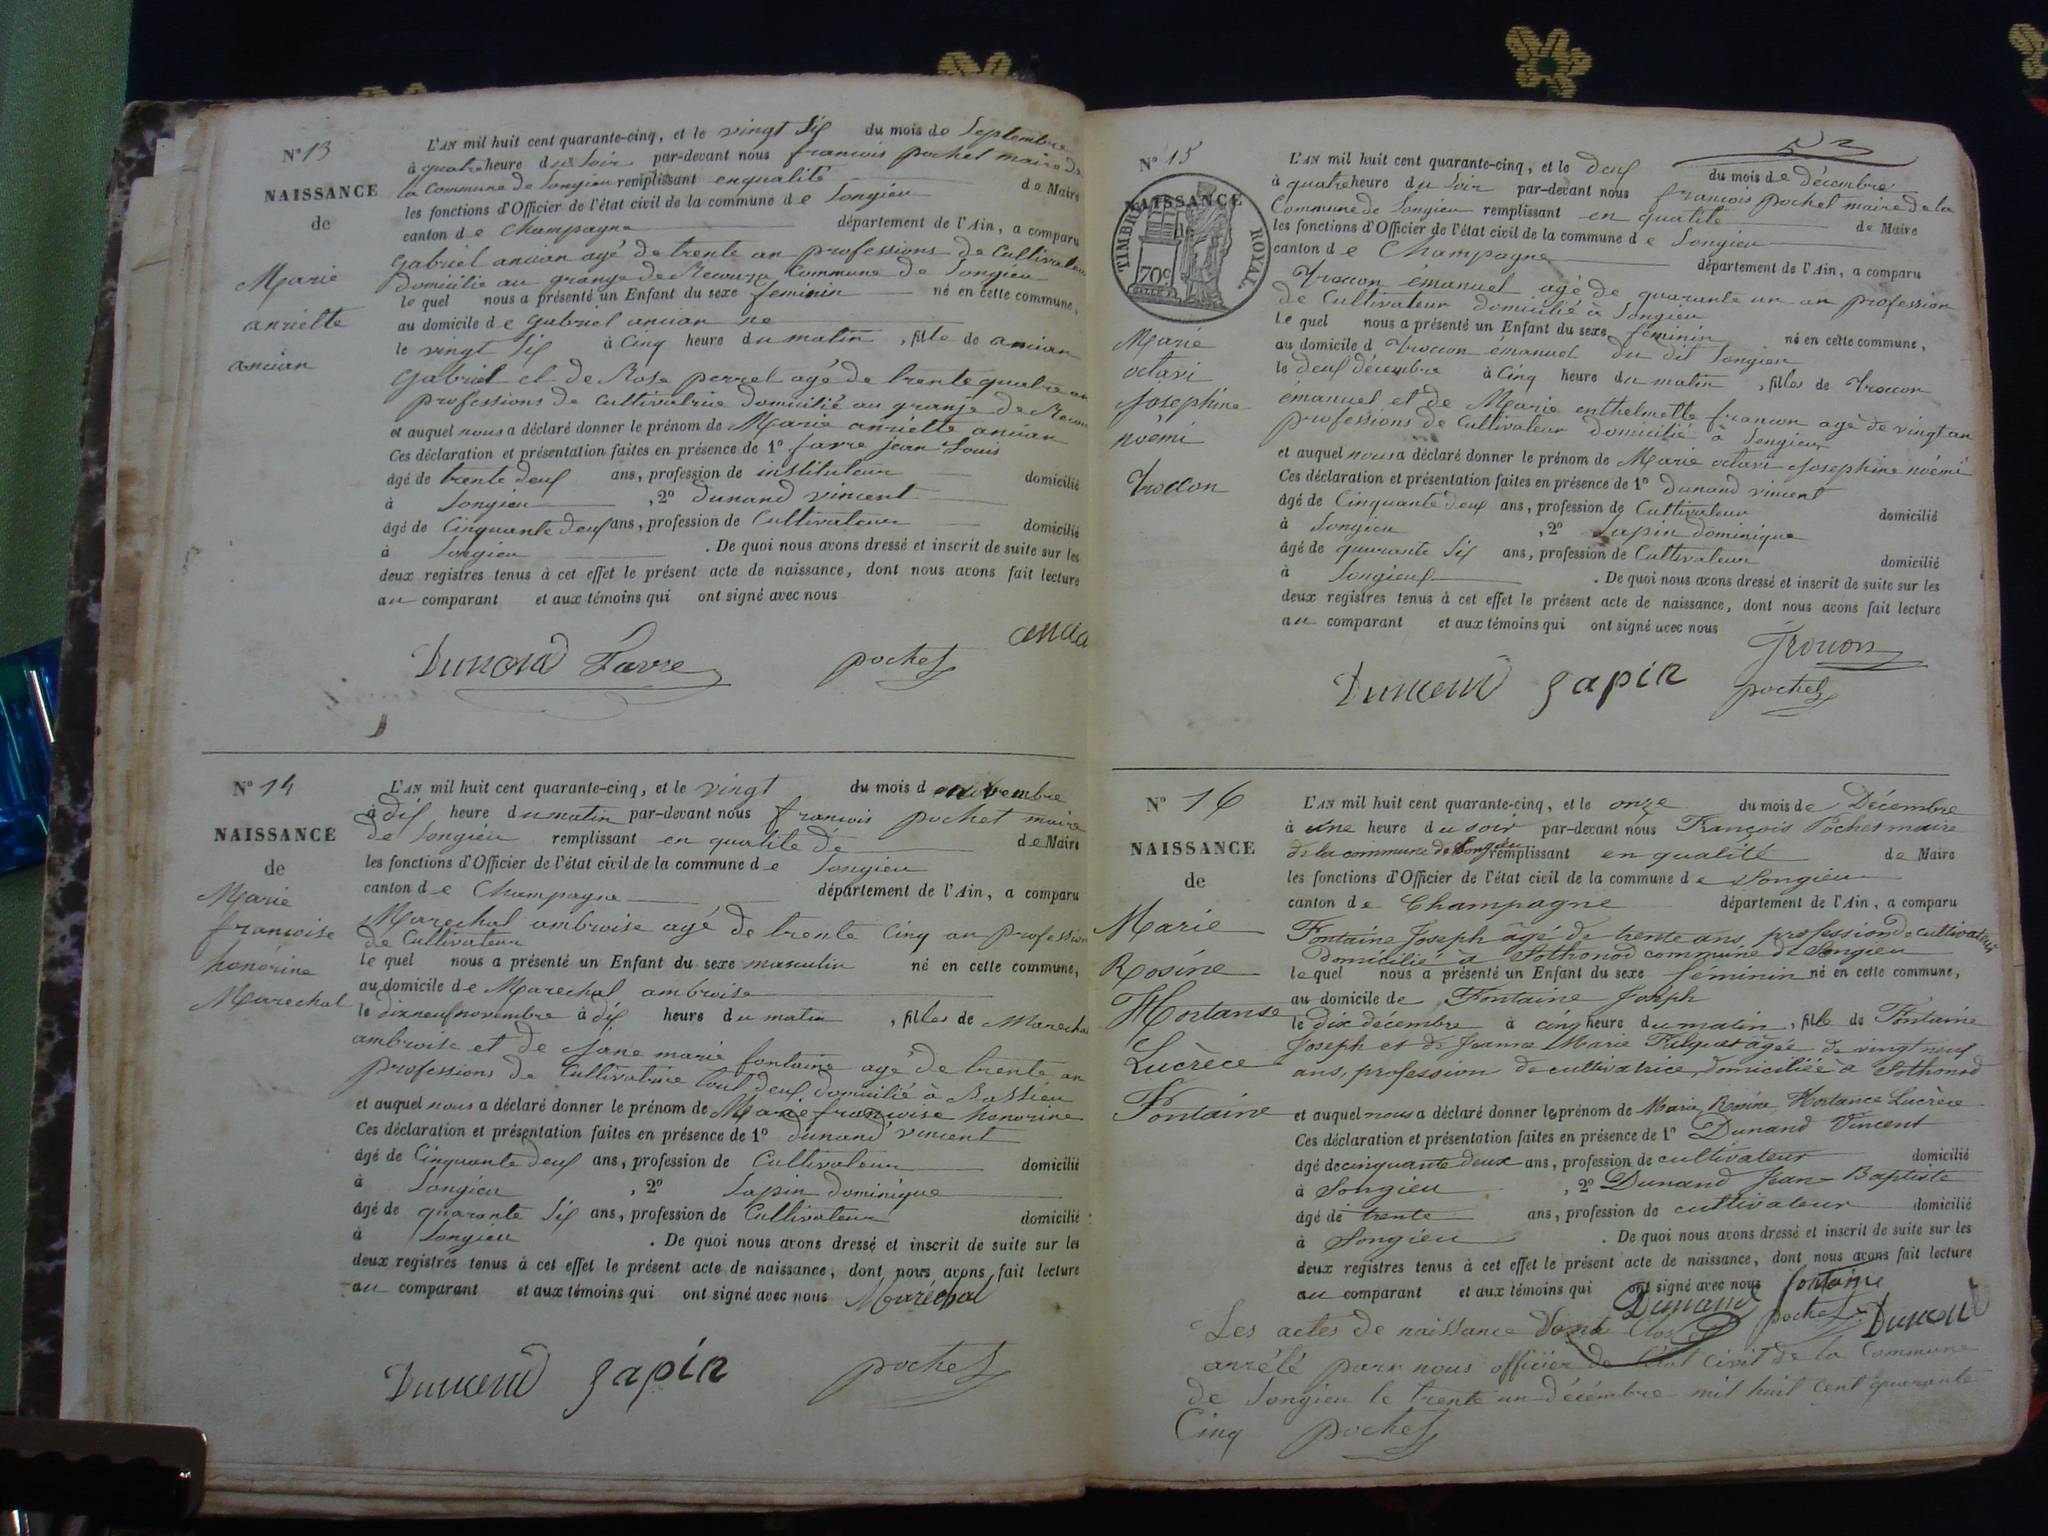 N° 13
NAISSANCE
de
Marie
anriette
ancian
L'AN mil huit cent quarante-cinq, et le vingt six du mois de Septembre
à quatre heure du Soir par-devant nous francois pochet maire de
la Commune de Songieu remplissant en qualité de Maire
les fonctions d'Officier de l'état civil de la commune de Songieu
canton de Champagne département de l'Ain, a comparu
Gabriel ancian agé de trente an professions de Cultivateur
Domicilié au grange de Commune de Songieu
le quel nous a présenté un Enfant du sexe feminin né en cette commune,
au domicile de Gabriel ancian ne
le vingt six à Cinq heure du matin, fille de ancian
Gabriel et de Rose perret agé de trente quatre an
professions de Cultivatrice domicilié au grange de
et auquel nous a déclaré donner le prénom de Marie anriette ancian
Ces déclaration et présentation faites en présence de 1° favre jean Louis
âgé de trente deux ans, profession de instituteur domicilié
à Songieu, 2° dunand vincent
âgé de Cinquante deux ans, profession de Cultivateur domicilié
à Songieu. De quoi nous avons dressé et inscrit de suite sur les
deux registres tenus à cet effet le présent acte de naissance, dont nous avons fait lecture
au comparant et aux témoins qui ont signé avec nous
ancia
Dunand Favre pochet
N° 14
NAISSANCE
de
Marie
francoise
honorine
Marechal
L'AN mil huit cent quarante-cinq, et le vingt du mois de novembre
à dix heure du matin par-devant nous francois pochet maire
de Songieu remplissant en qualité de de Maire
les fonctions d'Officier de l'état civil de la commune de Songieu
canton de Champagne département de l'Ain, a comparu
Marechal ambroise agé de trente cinq an profession
de Cultivateur
le quel nous a présenté un Enfant du sexe masculin né en cette commune,
au domicile de Marechal ambroise
le dixneuf novembre à dix heure du matin, filles de Marechal
ambroise et de jane marie fontaine agé de trente an
professions de Cultivatrice tout deux domicilié à Bassieu
et auquel nous a déclaré donner le prénom de Marie francoise honorine
Ces déclaration et présentation faites en présence de 1° dunand vincent
âgé de Cinquante deux ans, profession de Cultivateur domicilié
à Songieu, 2° Sapin dominique
âgé de quarante six ans, profession de Cultivateur domicilié
à Songieu. De quoi nous avons dressé et inscrit de suite sur les
deux registres tenus à cet effet le présent acte de naissance, dont nous avons fait lecture
au comparant et aux témoins qui ont signé avec nous Maréchal
Dunand Sapin pochet
N° 15
NAISSANCE
TIMBRE ROYAL
70c
Marie
octavi
josephine
noémi
Troccon
L'AN mil huit cent quarante-cinq, et le deux du mois de décembre
à quatre heure du Soir par-devant nous francois pochet maire de la
Commune de Songieu remplissant en qualité de Maire
les fonctions d'Officier de l'état civil de la commune de Songieu
canton de Champagne département de l'Ain, a comparu
Troccon émanuel agé de quarante un an profession
de Cultivateur domicilié à Songieu
le quel nous a présenté un Enfant du sexe féminin né en cette commune,
au domicile d Troccon émanuel du dit Songieu
le deux décembre à Cinq heure du matin, filles de Troccon
émanuel et de Marie enthelmette francon agé de vingt an
professions de Cultivateur domicilié à Songieu
et auquel nous a déclaré donner le prénom de Marie octavi josephine noémi
Ces déclaration et présentation faites en présence de 1° dunand vincent
âgé de Cinquante deux ans, profession de Cultivateur domicilié
à Songieu, 2° Sapin dominique
âgé de quarante six ans, profession de Cultivateur domicilié
à Songieux. De quoi nous avons dressé et inscrit de suite sur les
deux registres tenus à cet effet le présent acte de naissance, dont nous avons fait lecture
au comparant et aux témoins qui ont signé avec nous
Trocon
Dunand Sapin pochet
N° 16
NAISSANCE
de
Marie
Rosine
Hortanse
Lucrèce
Fontaine
L'AN mil huit cent quarante-cinq, et le onze du mois de Décembre
à une heure du soir par-devant nous François Pochet maire
de la commune de Songieu remplissant en qualité de Maire
les fonctions d'Officier de l'état civil de la commune de Songieu
canton de Champagne département de l'Ain, a comparu
Fontaine Joseph âgé de trente ans, profession de cultivateur
domicilié à Sothonod commune de Songieu
le quel nous a présenté un Enfant du sexe féminin né en cette commune,
au domicile de Fontaine Joseph
le dix décembre à cinq heure du matin, fille de Fontaine
Joseph et de Jeanne Marie âgée de vingt neuf
ans, profession de cultivatrice, domiciliée à Sothonod
et auquel nous a déclaré donner le prénom de Marie Rosine Hortance Lucrèce
Ces déclaration et présentation faites en présence de 1° Dunand Vincent
âgé de cinquante deux ans, profession de cultivateur domicilié
à Songieu, 2° Dunand Jean-Baptiste
âgé de trente ans, profession de cultivateur domicilié
à Songieu. De quoi nous avons dressé et inscrit de suite sur les
deux registres tenus à cet effet le présent acte de naissance, dont nous avons fait lecture
au comparant et aux témoins qui ont signé avec nous fontaine
Dunand pochet Dunand
Les actes de naissance Clos
arrêté parr nous officier de l'état civil de la Commune
de Songieu le trente un décémbre mil huit cent quarante
Cinq pochet